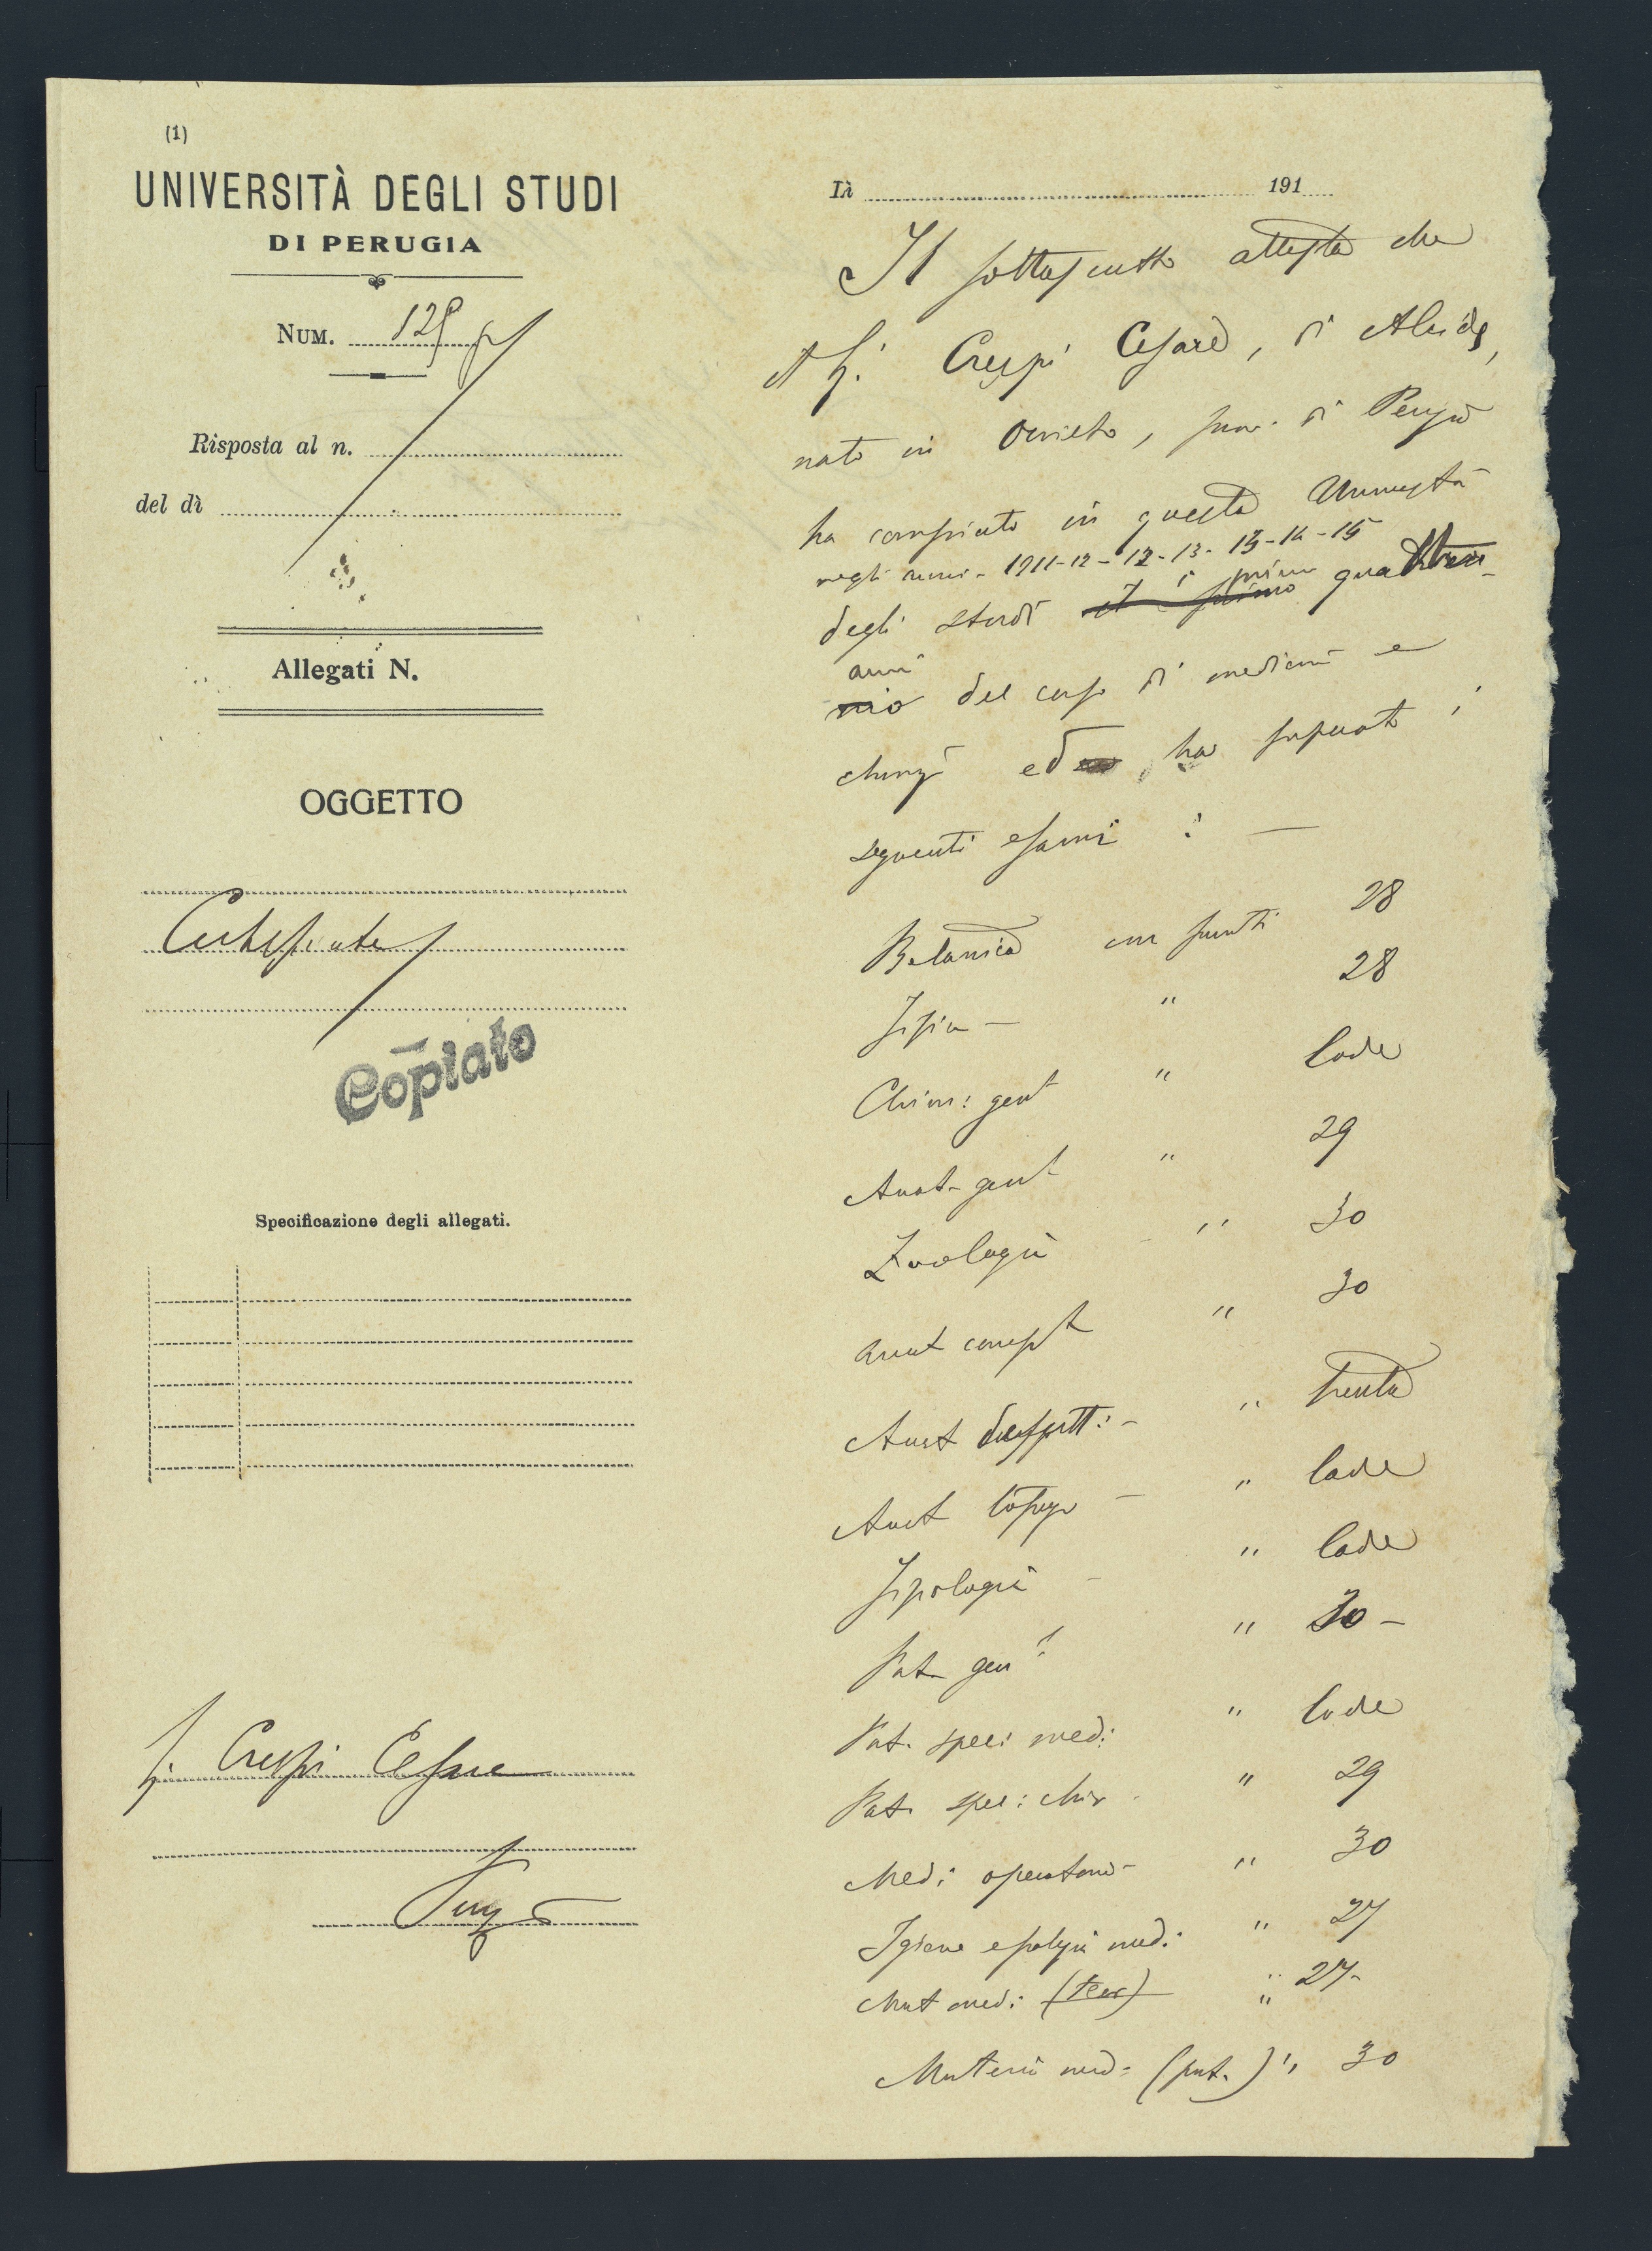 (1)
UNIVERSITÀ DEGLI STUDI
DI PERUGIA
NUM. 125
Risposta al n.
del dì
Allegati N.
OGGETTO
Certificato
Copiato
Specificazione degli allegati.
S. Crespi Cesare
Perugia
Lì 191
Il sottoscritto attesta che
il S. Crespi Cesare, di
nato in Orvieto, prov. di Perugia
ha compiuto in questa Università
negli anni - 1911-12 - 12-13 - 13-14-15
degli studi i primi quattro
anni
nio del corso di medicina e
chirurgia ed ha superato i
seguenti esami : —
Botanica con punti 28
Fisica — " 28
Chim: gen " lode
Anat. gen " 29
Zoologia " 30
Anat comp " 30
Anat descritt: - " trenta
Anat topogr — " lode
Fisiologia - " lode
Pat gen " 30 -
Pat. spec: med: " lode
Pat. spec: chir " 29
Med: operatoria - " 30
Igiene e polizia med: " 27
Mat med: (teor) " 27-
Materia med: (prat.) " 30